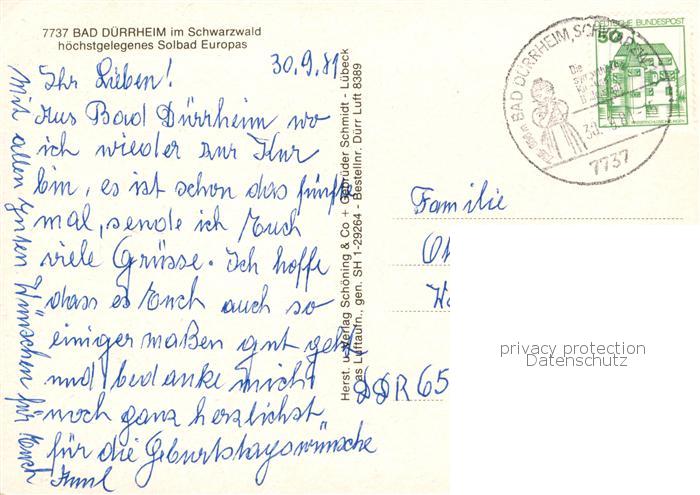 7737 BAD DÜRRHEIM im Schwarzwald
höchstgelegenes Solbad Europas
30.9.81
Ihr Lieben!
Aus Bad Dürrheim wo
ich wieder zur Kur
bin, es ist schon das fünfte
mal, sende ich Euch
viele Grüsse. Ich hoffe
dass es Euch auch so
einiger maßen gut geht
und bedanke mich
noch ganz herzlichst
für die Geburtstagswünsche
Mit allen guten Wünschen für Euch
Herst. u. Verlag Schöning & Co + Gebrüder Schmidt - Lübeck
as Luftaufn., gen. SH 1-29264 - Bestellnr. Dürr Luft 8389
BAD DÜRRHEIM, SCHWARZW
Die
7737
DEUTSCHE BUNDESPOST
50
Familie
DDR 65
privacy protection
Datenschutz